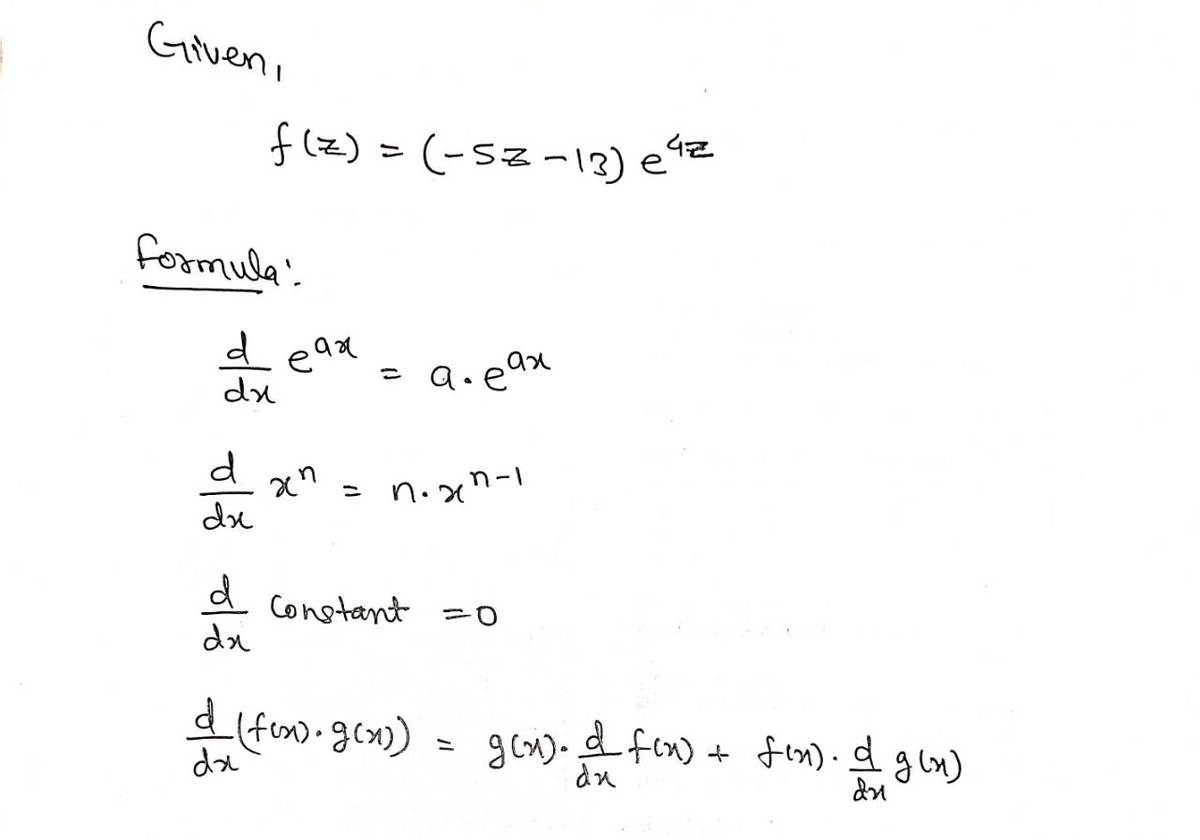 Given,
f(z) = (-5z -13) e^4z
formula:
d/dx e^ax = a.e^ax
d/dx x^n = n.x^n-1
d/dx Constant =0
d/dx (f(x).g(x)) = g(x). d/dx f(x) + f(x). d/dx g(x)